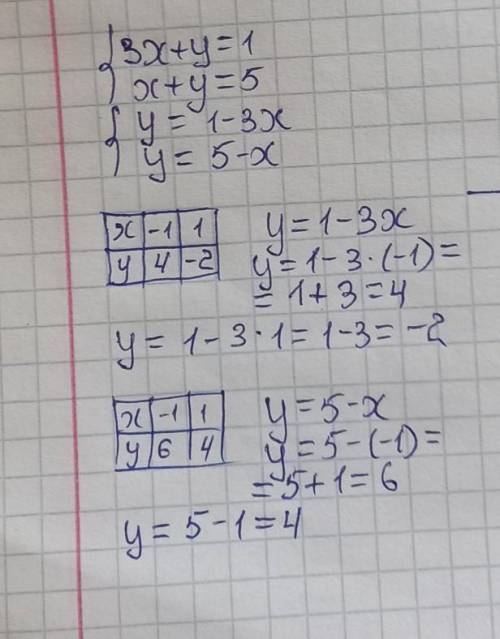 3x+y=1
x+y=5
y= 1-3x
y= 5-x
x -1 1
y 4 -2
y=1-3x
y=1-3·(-1)=
=1+3=4
y= 1-3·1=1-3=-2
x -1 1
y 6 4
y=5-x
y=5-(-1)=
=5+1=6
y= 5-1=4